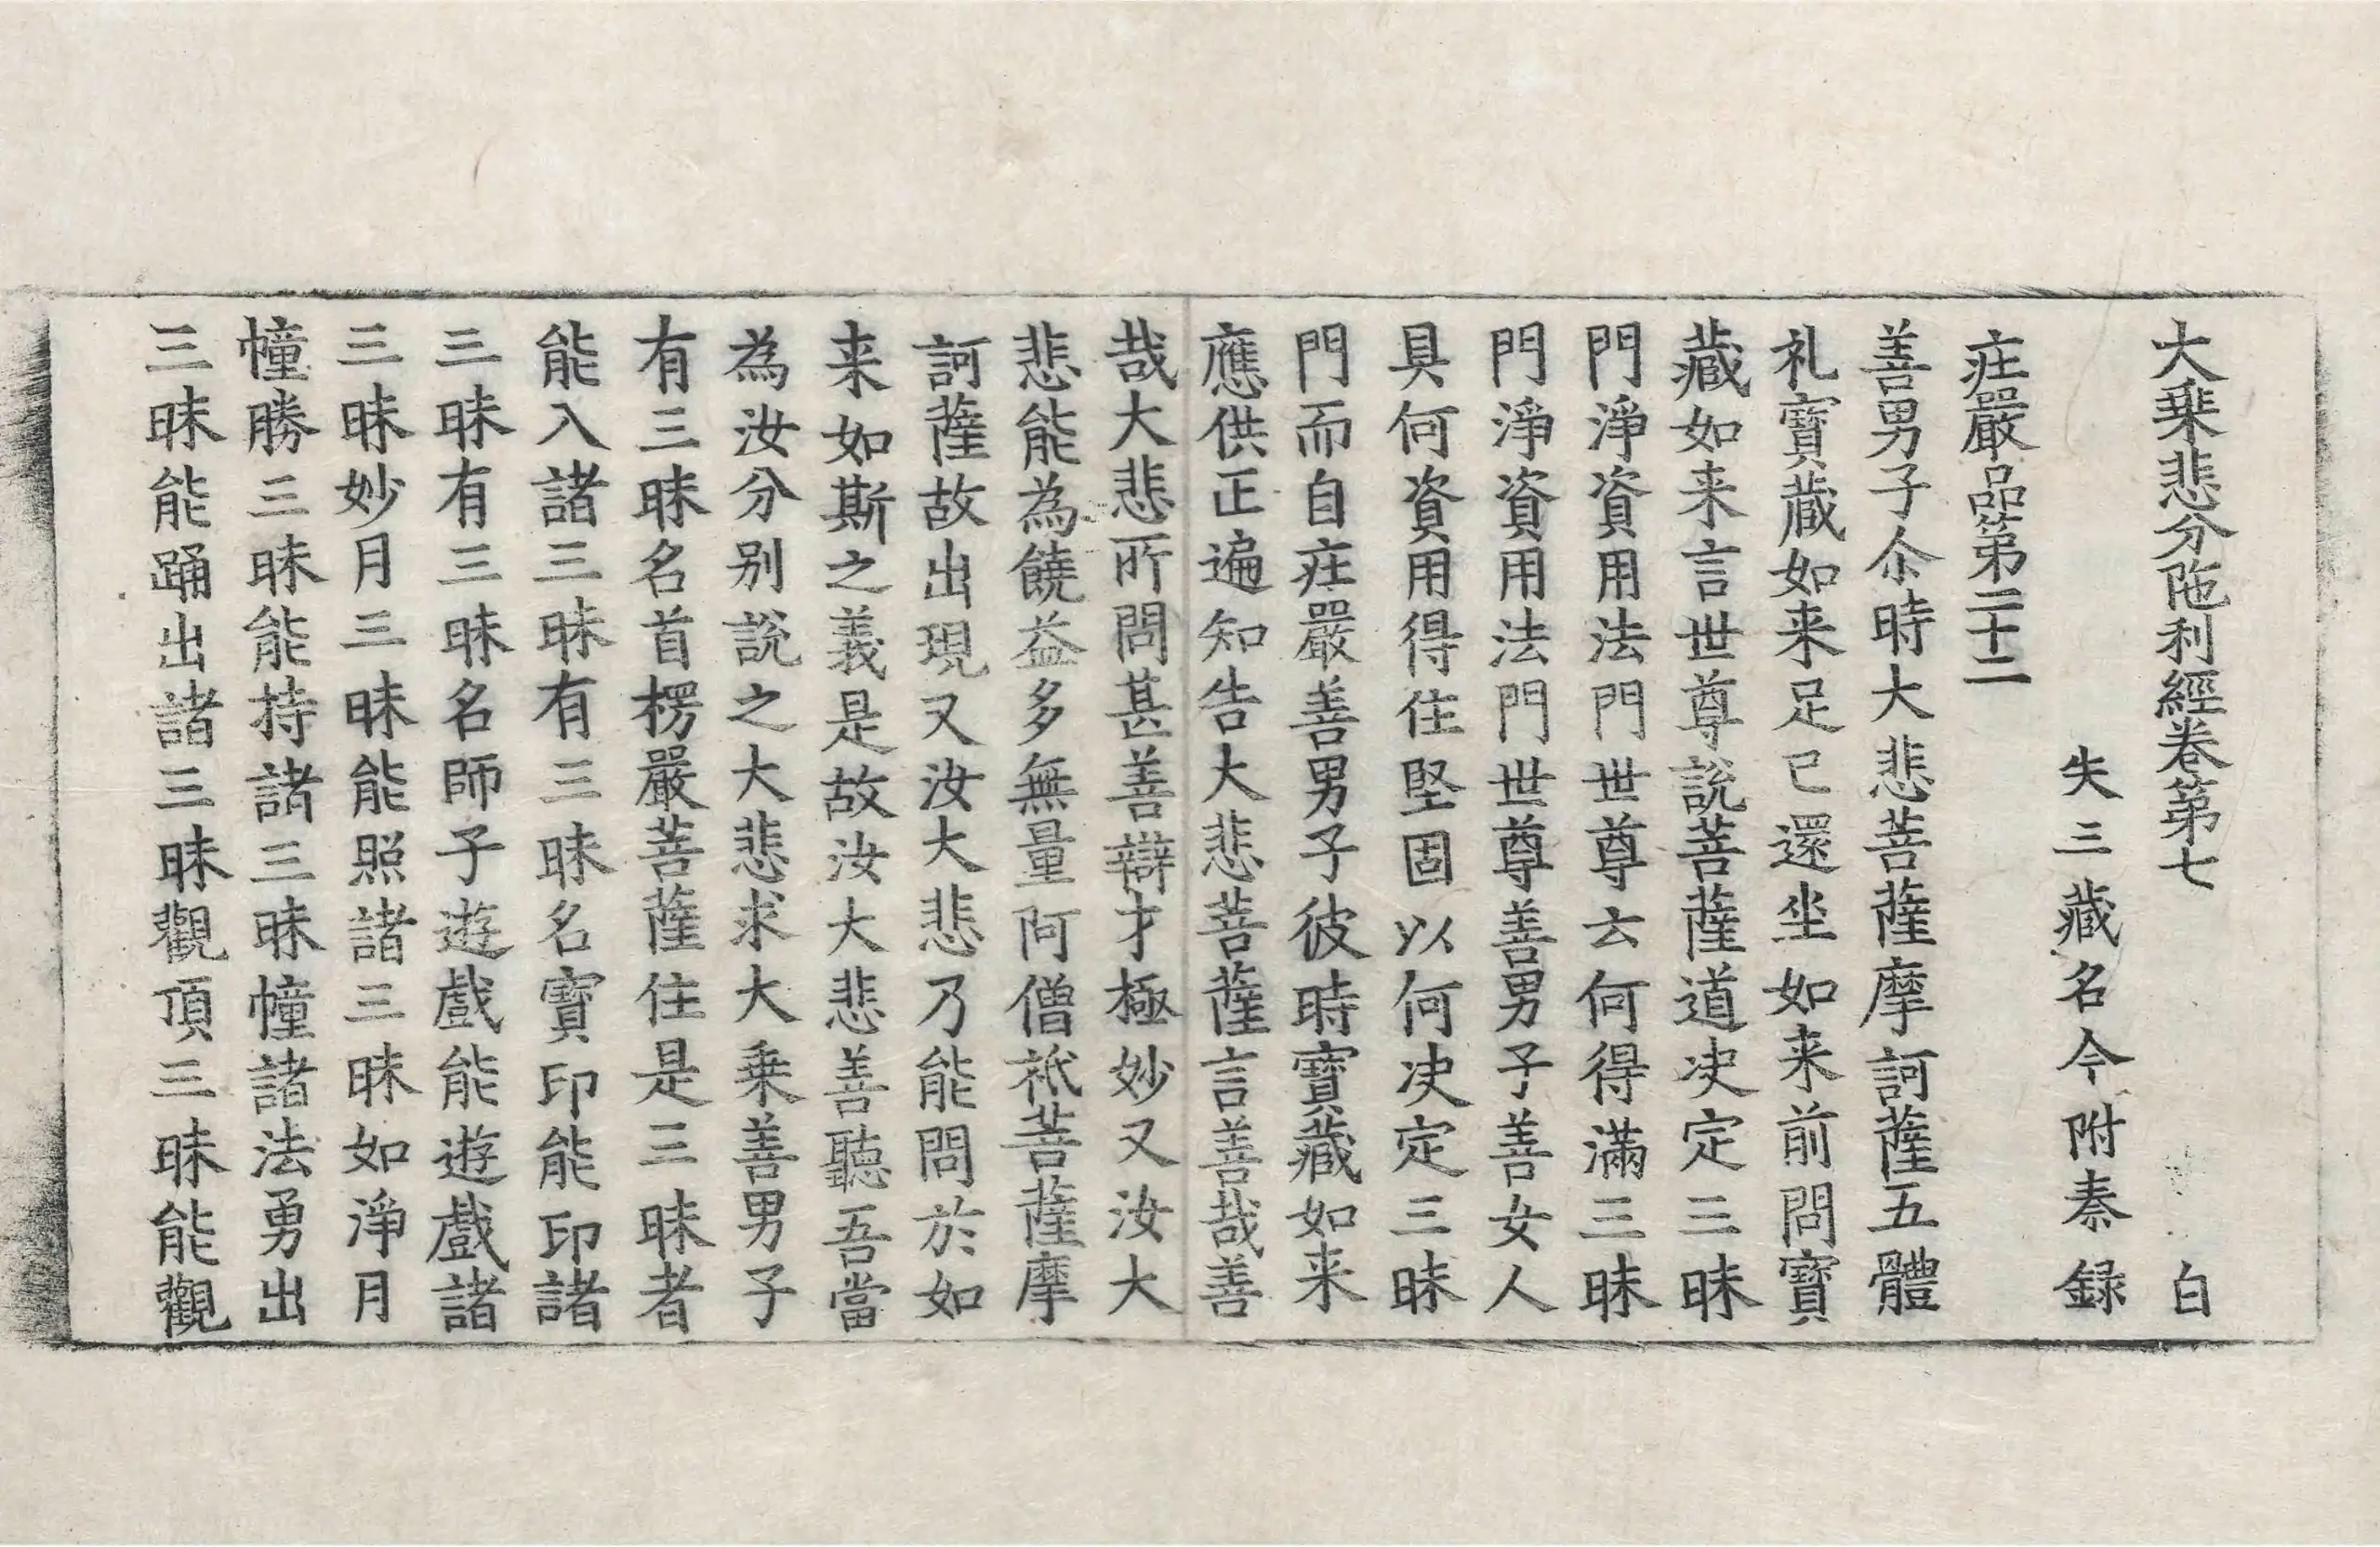 大乗悲分陁利經卷第七 白
失三藏名今附秦録
庄嚴品第二十二
善男子尒時大悲菩薩摩訶薩五體
礼寳藏如来足已還坐如来前問寳
藏如来言世尊說菩薩道决定三昧
門淨資用法門世尊云何得滿三昧
門淨資用法門世尊善男子善女人
具何資用得住堅固以何决定三昧
門而自庄嚴善男子彼時寳藏如来
應供正遍知告大悲菩薩言善哉善
哉大悲所問甚善辯才極妙又汝大
悲能為饒益多無量阿僧祇菩薩摩
訶薩故出現又汝大悲乃能問於如
来如斯之義是故汝大悲善聽吾當
為汝分别說之大悲求大乗善男子
有三昧名首楞嚴菩薩住是三昧者
能入諸三昧有三昧名寳印能印諸
三昧有三昧名師子遊戲能遊戲諸
三昧妙月三昧能照諸三昧如淨月
幢勝三昧能持諸三昧幢諸法勇出
三昧能踊出諸三昧觀頂三昧能觀